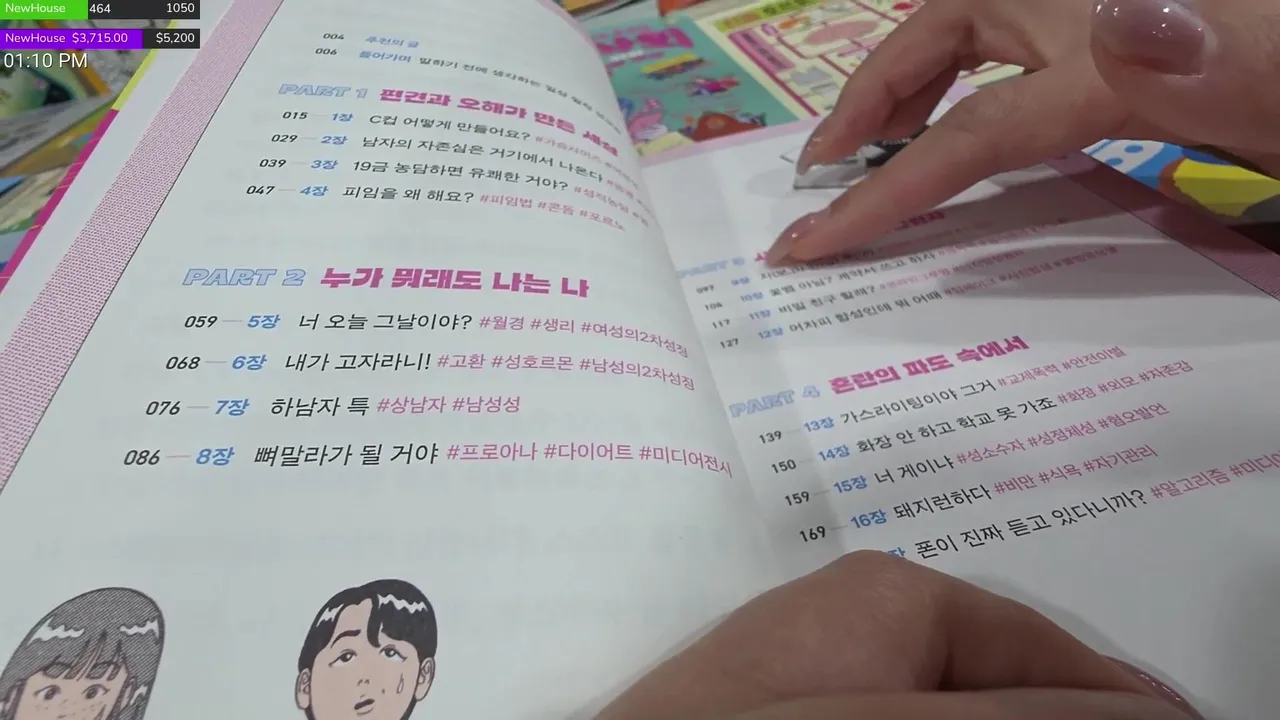 NewHouse 464 1050
NewHouse $3,715.00 $5,200
01:10 PM
004 추천의 글
006 들어가며 말하기 전에 생각하는
PART 1 편견과 오해가 만든 세상
015 1장 C컵 어떻게 만들어요?
029 2장 남자의 자존심은 거기에서 나온다
039 3장 19금 농담하면 유쾌한 거야? #성적농담
047 4장 피임을 왜 해요? #피임법 #콘돔 #포르노
PART 2 누가 뭐래도 나는 나
059 5장 너 오늘 그날이야? #월경 #생리 #여성의2차성징
068 6장 내가 고자라니! #고환 #성호르몬 #남성의2차성징
076 7장 하남자 특 #상남자 #남성성
086 8장 뼈말라가 될 거야 #프로아나 #다이어트 #미디어전시
PART 3
097 9장
106 10장 꽃뱀 아님? 계약서 쓰고 하자
117 11장 비밀 친구 할래?
127 12장 어차피 합성인데 뭐 어때
PART 4 혼란의 파도 속에서
139 13장 가스라이팅이야 그거 #교제폭력 #안전이별
150 14장 화장 안 하고 학교 못 가죠 #화장 #외모 #자존감
159 15장 너 게이냐 #성소수자 #성정체성 #혐오발언
169 16장 돼지런하다 #비만 #식욕 #자기관리
폰이 진짜 듣고 있다니까? #알고리즘